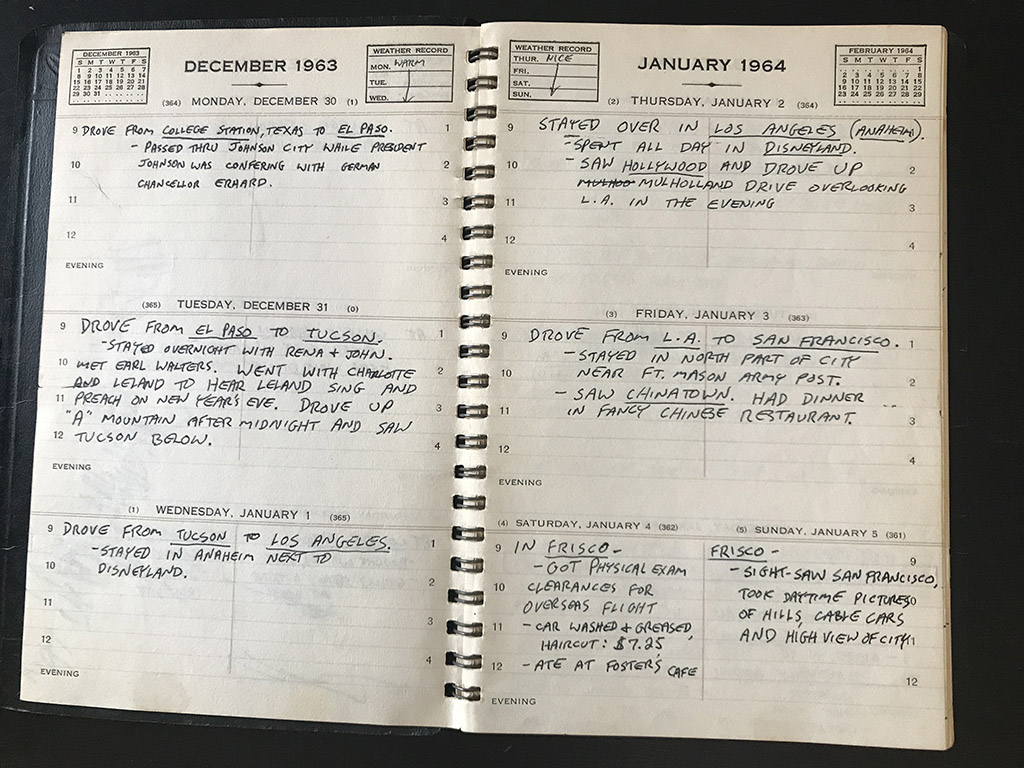 DECEMBER 1963
S M T W T F S
1 2 3 4 5 6 7
8 9 10 11 12 13 14
15 16 17 18 19 20 21
22 23 24 25 26 27 28
29 30 31
DECEMBER 1963
WEATHER RECORD
MON. WARM
TUE.
WED.
(364) MONDAY, DECEMBER 30 (1)
9 DROVE FROM COLLEGE STATION, TEXAS TO EL PASO. 1
- PASSED THRU JOHNSON CITY WHILE PRESIDENT
10 JOHNSON WAS CONFERING WITH GERMAN 2
CHANCELLOR ERHARD.
11 3
12 4
EVENING
(365) TUESDAY, DECEMBER 31 (0)
9 DROVE FROM EL PASO TO TUCSON. 1
- STAYED OVERNIGHT WITH RENA + JOHN.
10 MET EARL WALTERS. WENT WITH CHARLOTTE 2
AND LELAND TO HEAR LELAND SING AND
11 PREACH ON NEW YEAR'S EVE. DROVE UP 3
"A" MOUNTAIN AFTER MIDNIGHT AND SAW
12 TUCSON BELOW. 4
EVENING
(1) WEDNESDAY, JANUARY 1 (365)
9 DROVE FROM TUCSON TO LOS ANGELES. 1
- STAYED IN ANAHEIM NEXT TO
10 DISNEYLAND. 2
11 3
12 4
EVENING
WEATHER RECORD
THUR. NICE
FRI.
SAT.
SUN.
JANUARY 1964
FEBRUARY 1964
S M T W T F S
1
2 3 4 5 6 7 8
9 10 11 12 13 14 15
16 17 18 19 20 21 22
23 24 25 26 27 28 29
(2) THURSDAY, JANUARY 2 (364)
9 STAYED OVER IN LOS ANGELES (ANAHEIM).
- SPENT ALL DAY IN DISNEYLAND.
10 - SAW HOLLYWOOD AND DROVE UP 2
MULHOO MULHOLLAND DRIVE OVERLOOKING
11 L.A. IN THE EVENING 3
12 4
EVENING
(3) FRIDAY, JANUARY 3 (363)
9 DROVE FROM L.A. TO SAN FRANCISCO. 1
- STAYED IN NORTH PART OF CITY
10 NEAR FT. MASON ARMY POST. 2
- SAW CHINATOWN. HAD DINNER
11 IN FANCY CHINESE RESTAURANT. 3
12 4
EVENING
(4) SATURDAY, JANUARY 4 (362)
9 IN FRISCO -
- GOT PHYSICAL EXAM
10 CLEARANCES FOR
OVERSEAS FLIGHT
11 - CAR WASHED + GREASED,
HAIRCUT: $7.25
12 - ATE AT FOSTER'S CAFE
EVENING
(5) SUNDAY, JANUARY 5 (361)
FRISCO - 9
- SIGHT-SAW SAN FRANCISCO,
TOOK DAYTIME PICTURES 10
OF HILLS, CABLE CARS
AND HIGH VIEW OF CITY. 11
12